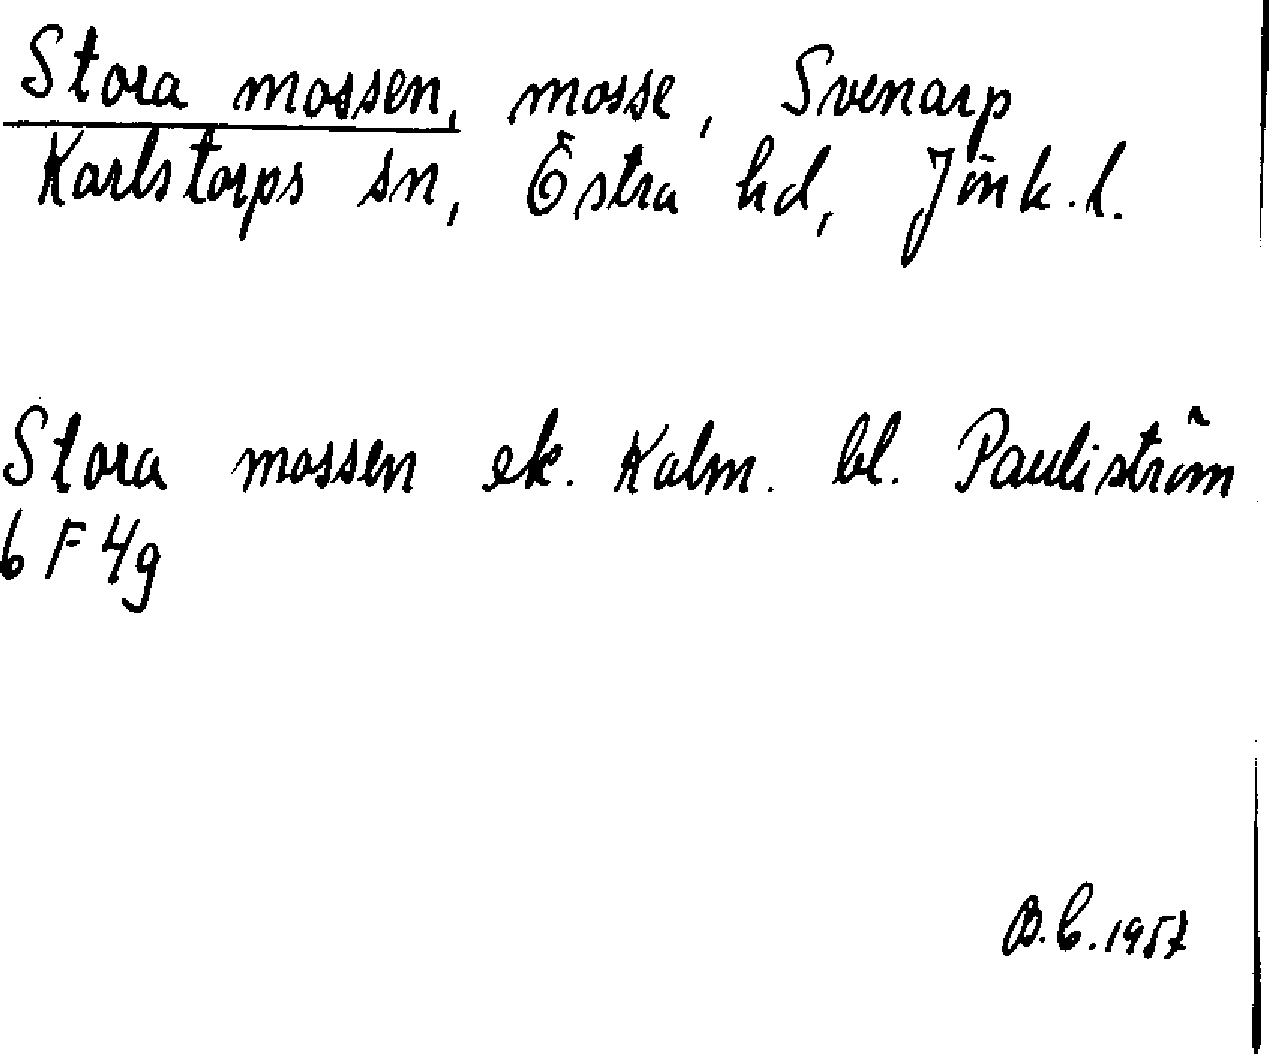 Stora mossen, mosse, Svenarp
Karlstorps sn, Östra hd, Jönk. l.
Stora mossen ek. Kalm. bl. Pauliström
6 F 4g
B.C. 1957